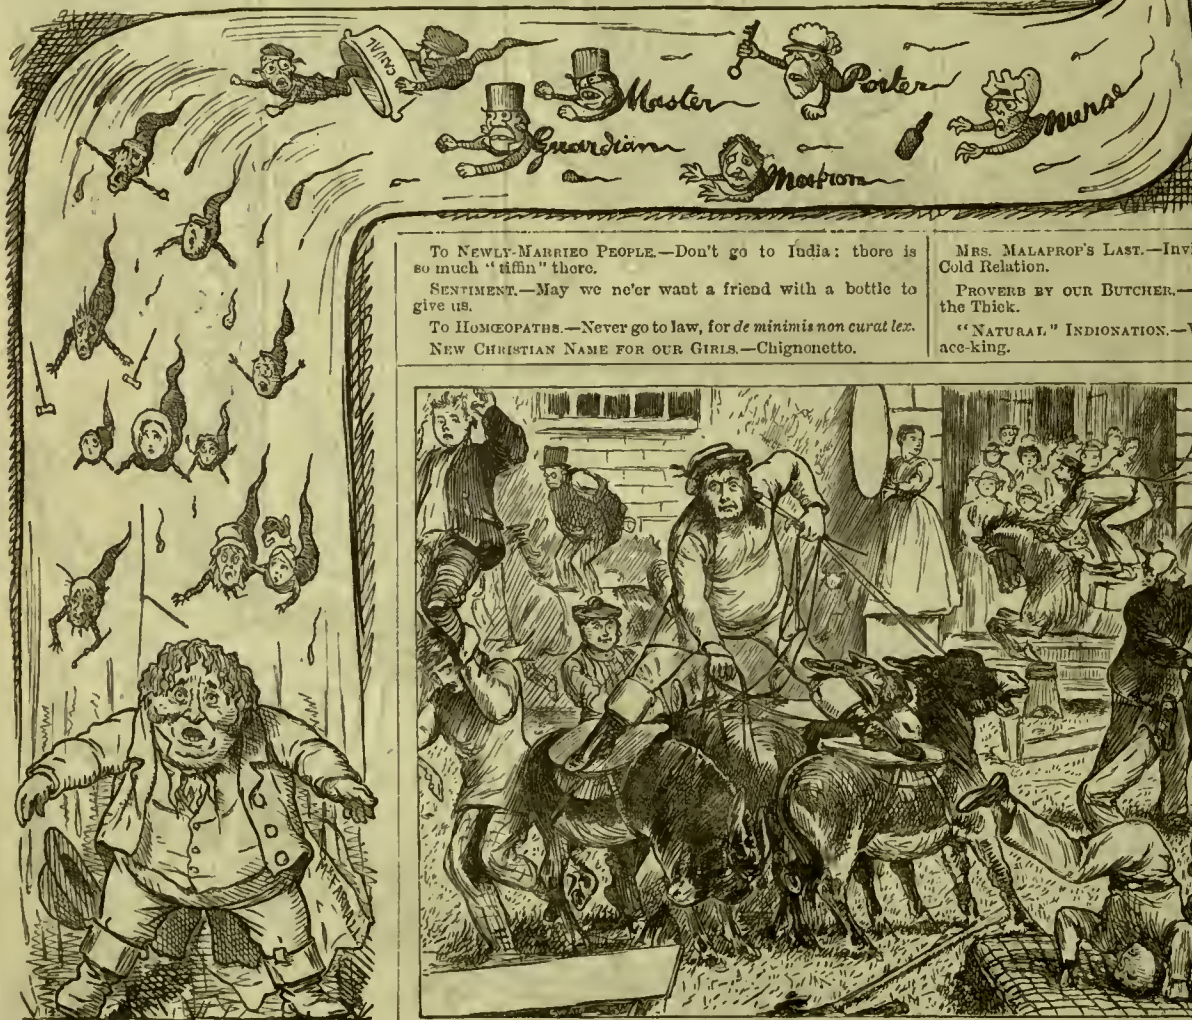 Master
Porter
Guardian
Nurse
Matron
TO NEWLY-MARRIED PEOPLE.—Don't go to India: there is
so much "tiffin" there.
SENTIMENT.—May we ne'er want a friend with a bottle to
give us.
TO HOMŒOPATHS.—Never go to law, for de minimis non curat lex.
NEW CHRISTIAN NAME FOR OUR GIRLS.—Chignonetto.
MRS. MALAPROP'S LAST.—Inv
Cold Relation.
PROVERB BY OUR BUTCHER.—
the Thick.
"NATURAL" INDIGNATION.—
ace-king.